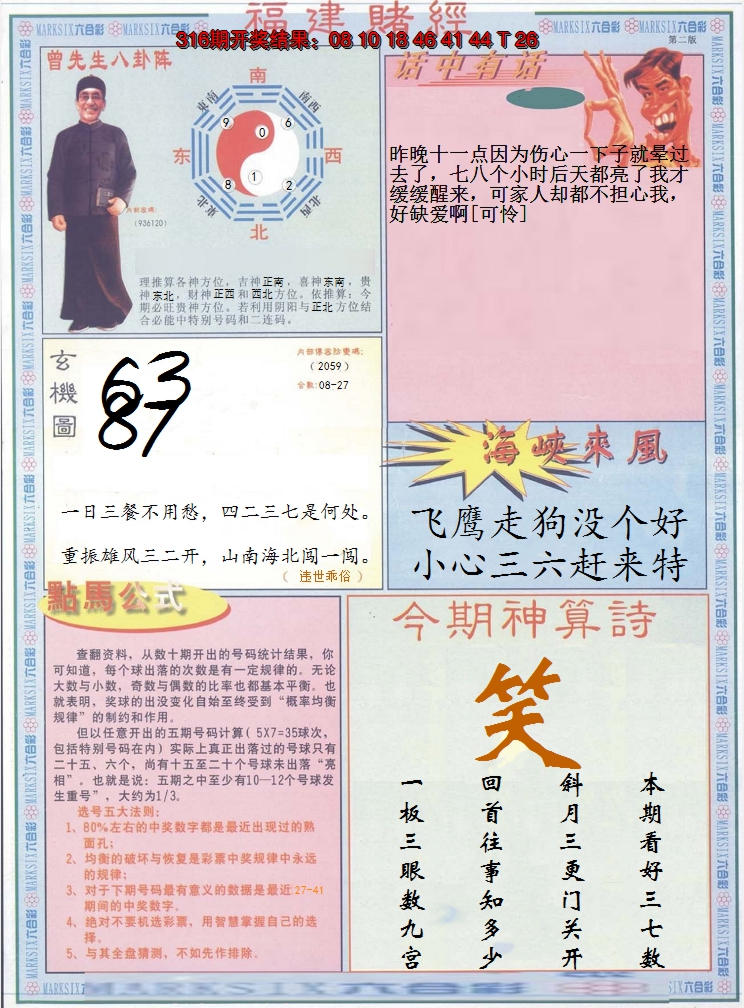 福建賭經
316期开奖结果：08 10 18 46 41 44 T 26
第二版
曾先生八卦阵
南
東南
南西
东
西
東北
北西
北
9
0
6
8
1
2
内部密碼：
（936120）
理推算各神方位，吉神正南，喜神东南，贵
神东北，财神正西和西北方位。依推算：今
期必旺贵神方位。若利用阴阳与正北方位结
合必能中特别号码和二连码。
话中有话
昨晚十一点因为伤心一下子就晕过
去了，七八个小时后天都亮了我才
缓缓醒来，可家人却都不担心我，
好缺爱啊[可怜]
玄機圖
63
87
（2059）
合数：08-27
一日三餐不用愁，四二三七是何处。
重振雄风三二开，山南海北闯一闯。
（ 违世乖俗 ）
海峽來風
飞鹰走狗没个好
小心三六赶来特
點馬公式
查翻资料，从数十期开出的号码统计结果，你
可知道，每个球出落的次数是有一定规律的。无论
大数与小数，奇数与偶数的比率也都基本平衡。也
就表明，奖球的出没变化自始至终受到“概率均衡
规律”的制约和作用。
但以任意开出的五期号码计算（5X7=35球次，
包括特别号码在内）实际上真正出落过的号球只有
二十五、六个，尚有十五至二十个号球未出落“亮
相”。也就是说：五期之中至少有10—12个号球发
生重号”，大约为1/3。
选号五大法则：
1、80%左右的中奖数字都是最近出现过的熟
面孔；
2、均衡的破坏与恢复是彩票中奖规律中永远
的规律；
3、对于下期号码最有意义的数据是最近27-41
期间的中奖数字。
4、绝对不要机选彩票，用智慧掌握自己的选
择。
5、与其全盘猜测，不如先作排除。
今期神算詩
笑
本期看好三七数
斜月三更门关开
回首往事知多少
一板三眼数九宫
MARKSIX六合彩